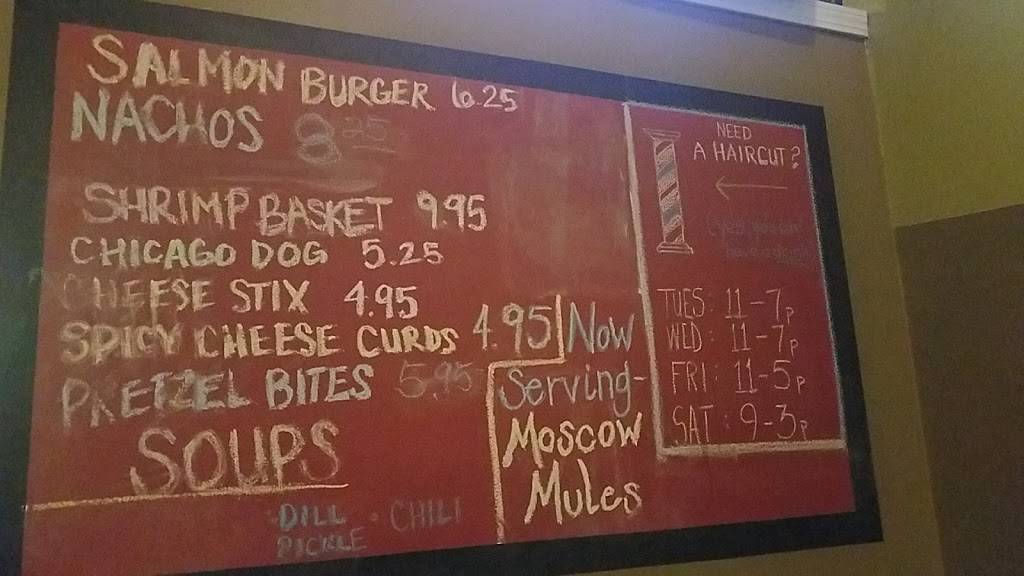 SALMON BURGER 6.25
NACHOS 8.25
SHRIMP BASKET 9.95
CHICAGO DOG 5.25
CHEESE STIX 4.95
SPICY CHEESE CURDS 4.95
PRETZEL BITES 5.95
SOUPS
DILL PICKLE • CHILI
Now
Serving-
Moscow
Mules
NEED
A HAIRCUT?
TUES: 11-7p
WED: 11-7p
FRI: 11-5p
SAT: 9-3p